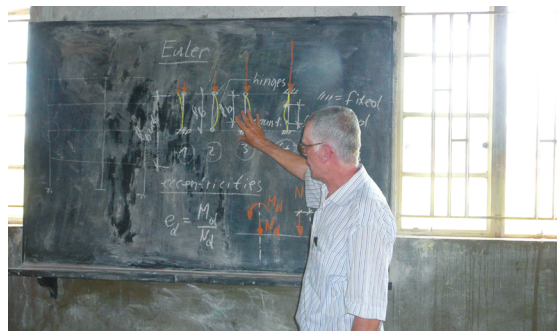 Euler
hinges
= fixed
1 2 3
eccentricities
e_d = M_d / N_d
M_d
N_d
N